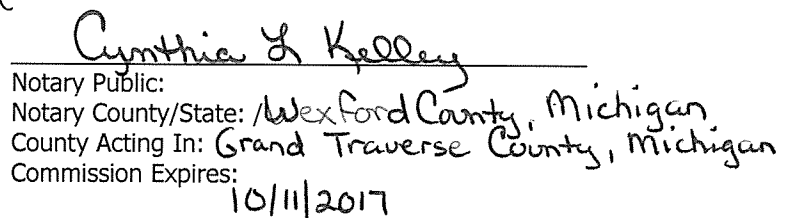 Cynthia L Kelley
Notary Public:
Notary County/State: /Wexford County, Michigan
County Acting In: Grand Traverse County, Michigan
Commission Expires:
10/11/2017